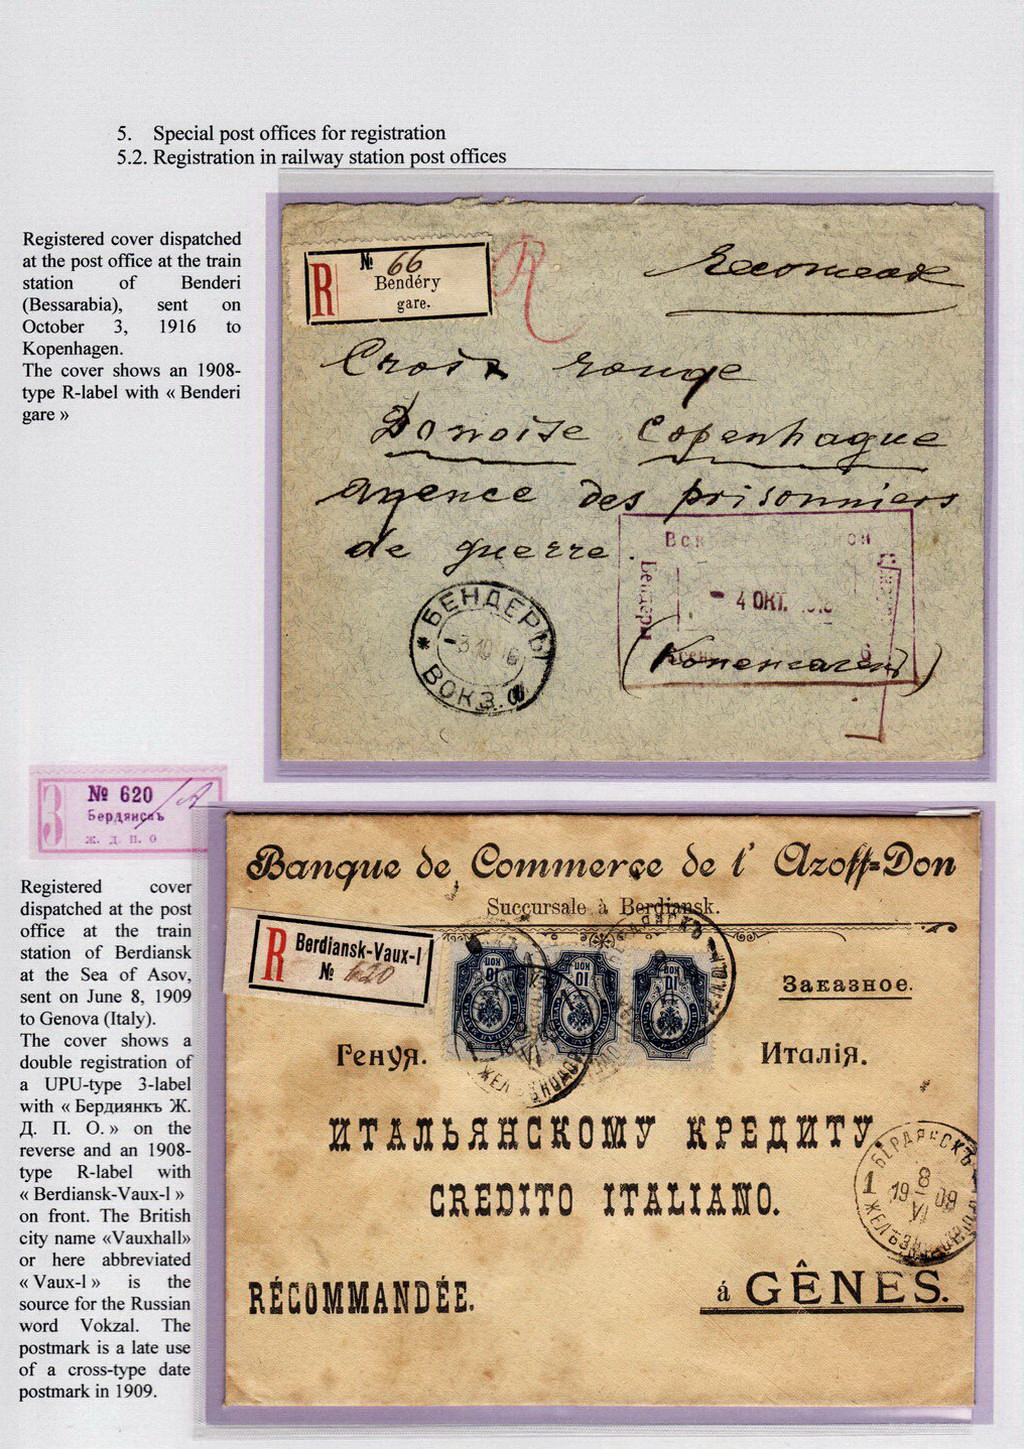 5. Special post offices for registration
5.2. Registration in railway station post offices
Registered cover dispatched
at the post office at the train
station of Benderi
(Bessarabia), sent on
October 3, 1916 to
Kopenhagen.
The cover shows an 1908-
type R-label with « Benderi
gare »
R
№ 66
Bendéry
gare.
R
Croix rouge
Danoise Copenhague
agence des prisonniers
de guerre.
Бендеры
- 4 ОКТ.
(Копенгагенъ)
* БЕНДЕРЫ
-3 10 16
ВОКЗ.
З
№ 620
Бердянскъ
Ж. Д. П. О
Registered cover
dispatched at the post
office at the train
station of Berdiansk
at the Sea of Asov,
sent on June 8, 1909
to Genova (Italy).
The cover shows a
double registration of
a UPU-type 3-label
with « Бердиянкъ Ж.
Д. П. О. » on the
reverse and an 1908-
type R-label with
« Berdiansk-Vaux-l »
on front. The British
city name «Vauxhall»
or here abbreviated
« Vaux-l » is the
source for the Russian
word Vokzal. The
postmark is a late use
of a cross-type date
postmark in 1909.
Banque de Commerce de l' Azoff=Don
Succursale à Berdiansk.
R
Berdiansk-Vaux-l
№ 620
10 КОП
10 КОП
10 КОП
Заказное.
Генуя. Италія.
ИТАЛЬЯНСКОМУ КРЕДИТУ.
CREDITO ITALIANO.
БЕРДЯНСКЪ
1
8
19 09
VI
RÉCOMMANDÉE.
á GÊNES.